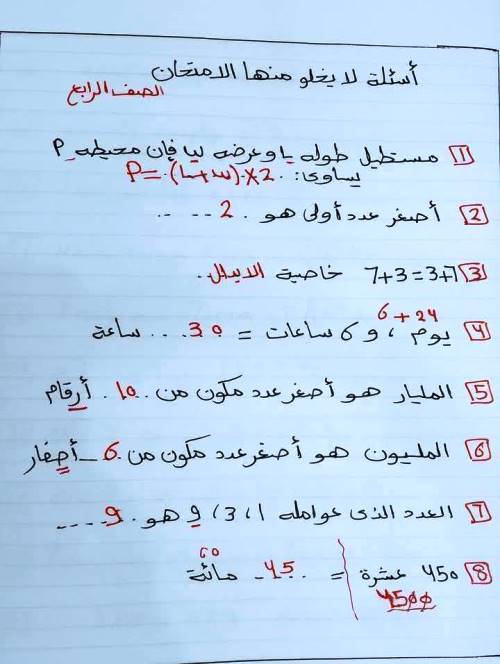 أسئلة لا يخلو منها الامتحان
الصف الرابع
1 مستطيل طوله يا وعرضه ليا فإن محيطه P
يساوى: P = (L+w)×2
2 أصغر عدد أولى هو . 2 ....
3 7+3=3+7 خاصية الابدال.
6 + 24
4 يوم ، و 6 ساعات = 30 ... ساعة
5 المليار هو أصغر عدد مكون من .. 10 . أرقام
6 المليون هو أصغر عدد مكون من 6 أصفار
7 العدد الذى عوامله 1، 3، 9 هو . 9 ....
8 450 عشرة = .45.. مائة
00
4500